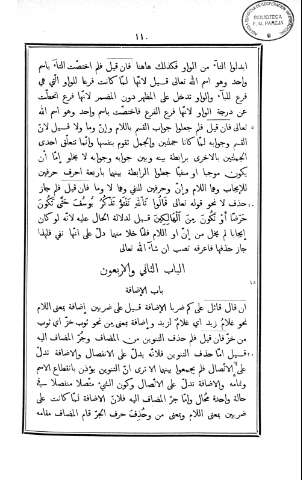 ١١٠
BIBLIOTECA
F. M. PAREJA
ابدلوا التاء من الواو فكذلك هاهنا فان قيل فلم اختصّت التاء باسم
واحد وهو اسم اللّه تعالى قيل لانّها لمّا كانت فرعا للواو التي هي
فرع للباء والواو تدخل على المظهر دون المضمر لانّها فرع انحطّت
عن درجة الواو لانّها فرع الفرع فاختصّت باسم واحد وهو اسم اللّه
٥ تعالى فان قيل فلم جعلوا جواب القسم باللام وإنّ وما ولا قيل لانّ
القسم وجوابه لمّا كانا جملتين والجمل تقوم بنفسها وإنّما تتعلّق احدى
الجملتين بالاخرى برابطة بينه وبين جوابه وجوابه لا يخلو إمّا أن
يكون موجبا او منفيّا جعلوا الرابطة بينهما باربعة احرف حرفين
للإيجاب وهما اللام وإنّ وحرفين للنفي وهما لا وما فان قيل فلم جاز
حذف لا نحو قوله تعالى قَالُوا تَاللَّهِ تَفْتَؤُ تَذْكُرُ يُوسُفَ حَتَّى تَكُونَ
حَرَضًا أَوْ تَكُونَ مِنَ ٱلْهَالِكِينَ قيل لدلالة الحال عليه لانّه لو كان
إيجابا لم يخل من إنّ او اللام فلمّا خلا منهما دلّ على انّها نفي فلهذا
جاز حذفها فاعرفه تصب ان شاء اللّه تعالى
الباب الثاني والاربعون
١٥ باب الإضافة
ان قال قائل على كم ضربا الإضافة قيل على ضربين إضافة بمعنى اللام
نحو غلامُ زيدٍ اي غلامٌ لزيد وإضافة بمعنى من نحو ثوبُ خزٍّ اي ثوب
من خزّ فان قيل فلم حذف التنوين من المضاف وجُرّ المضاف اليه
قيل امّا حذف التنوين فلانّه يدلّ على الانفصال والاضافة تدلّ
٢٠ على الاتّصال فلم يجمعوا بينهما الا ترى انّ التنوين يؤذن بانقطاع الاسم
وتمامه والاضافة تدلّ على الاتّصال وكون الشيء متّصلا منفصلا في
حالة واحدة مُحال وإمّا جرّ المضاف اليه فلانّ الاضافة لمّا كانت على
ضربين بمعنى اللام وبمعنى من وحُذِفَ حرف الجرّ قام المضاف مقامه